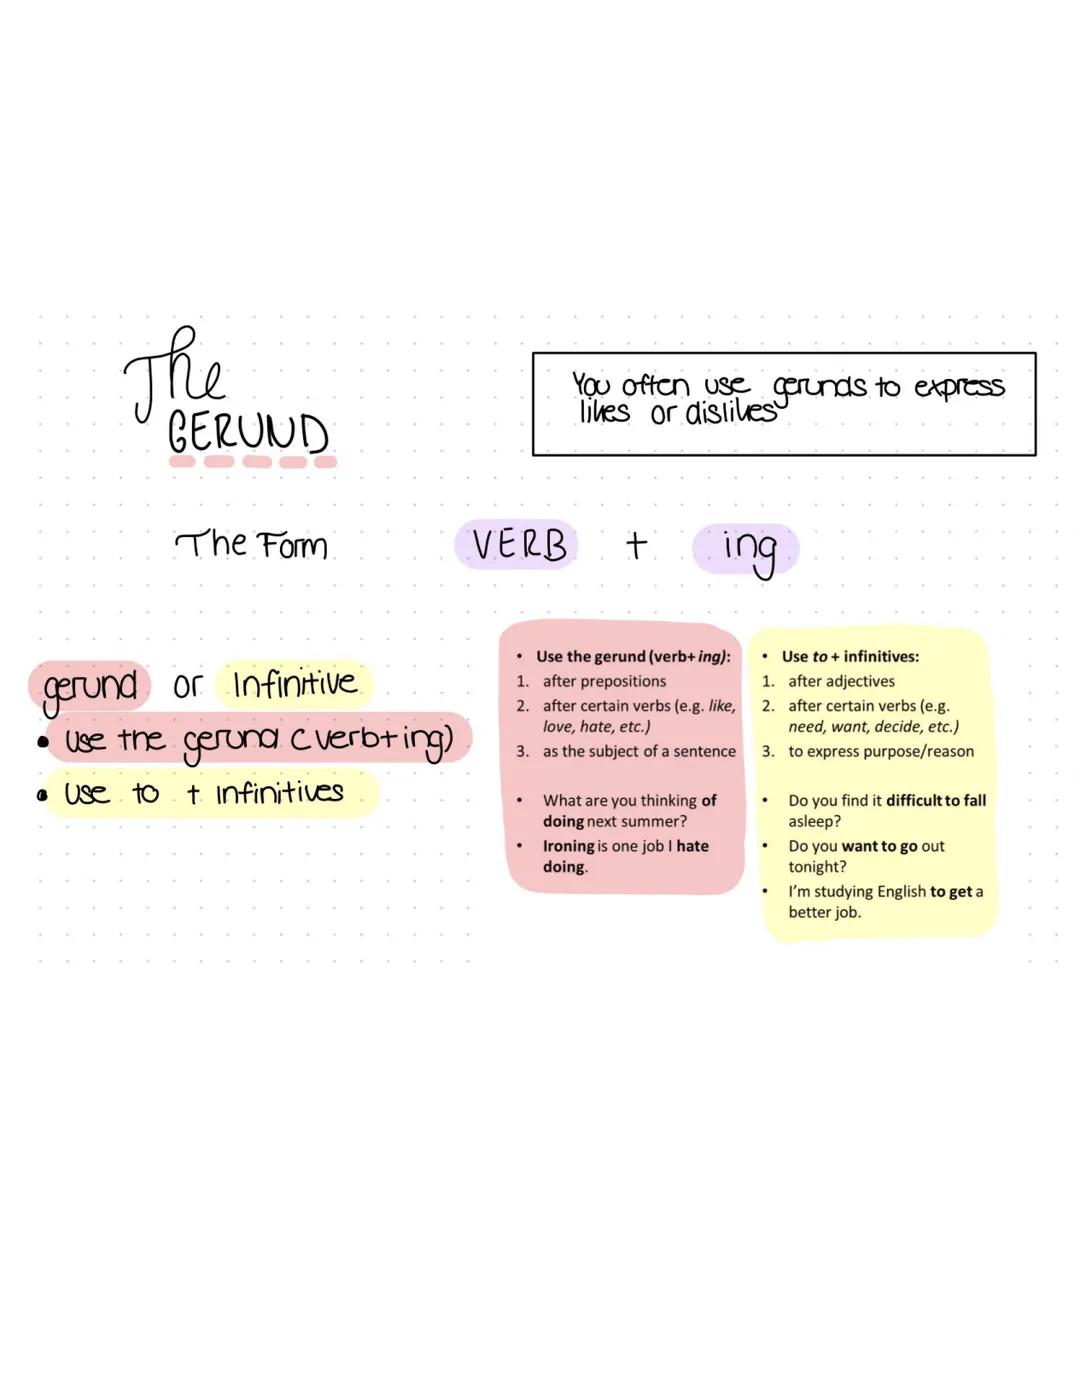 The
GERUND
You often use gerunds to express
likes or dislikes
The Form VERB + ing
gerund or Infinitive
• use the gerund (verb+ing)
• use to + infinitives
• Use the gerund (verb+ ing):
1. after prepositions
2. after certain verbs (e.g. like,
love, hate, etc.)
3. as the subject of a sentence
• What are you thinking of
doing next summer?
• Ironing is one job I hate
doing.
• Use to + infinitives:
1. after adjectives
2. after certain verbs (e.g.
need, want, decide, etc.)
3. to express purpose/reason
• Do you find it difficult to fall
asleep?
• Do you want to go out
tonight?
• I'm studying English to get a
better job.